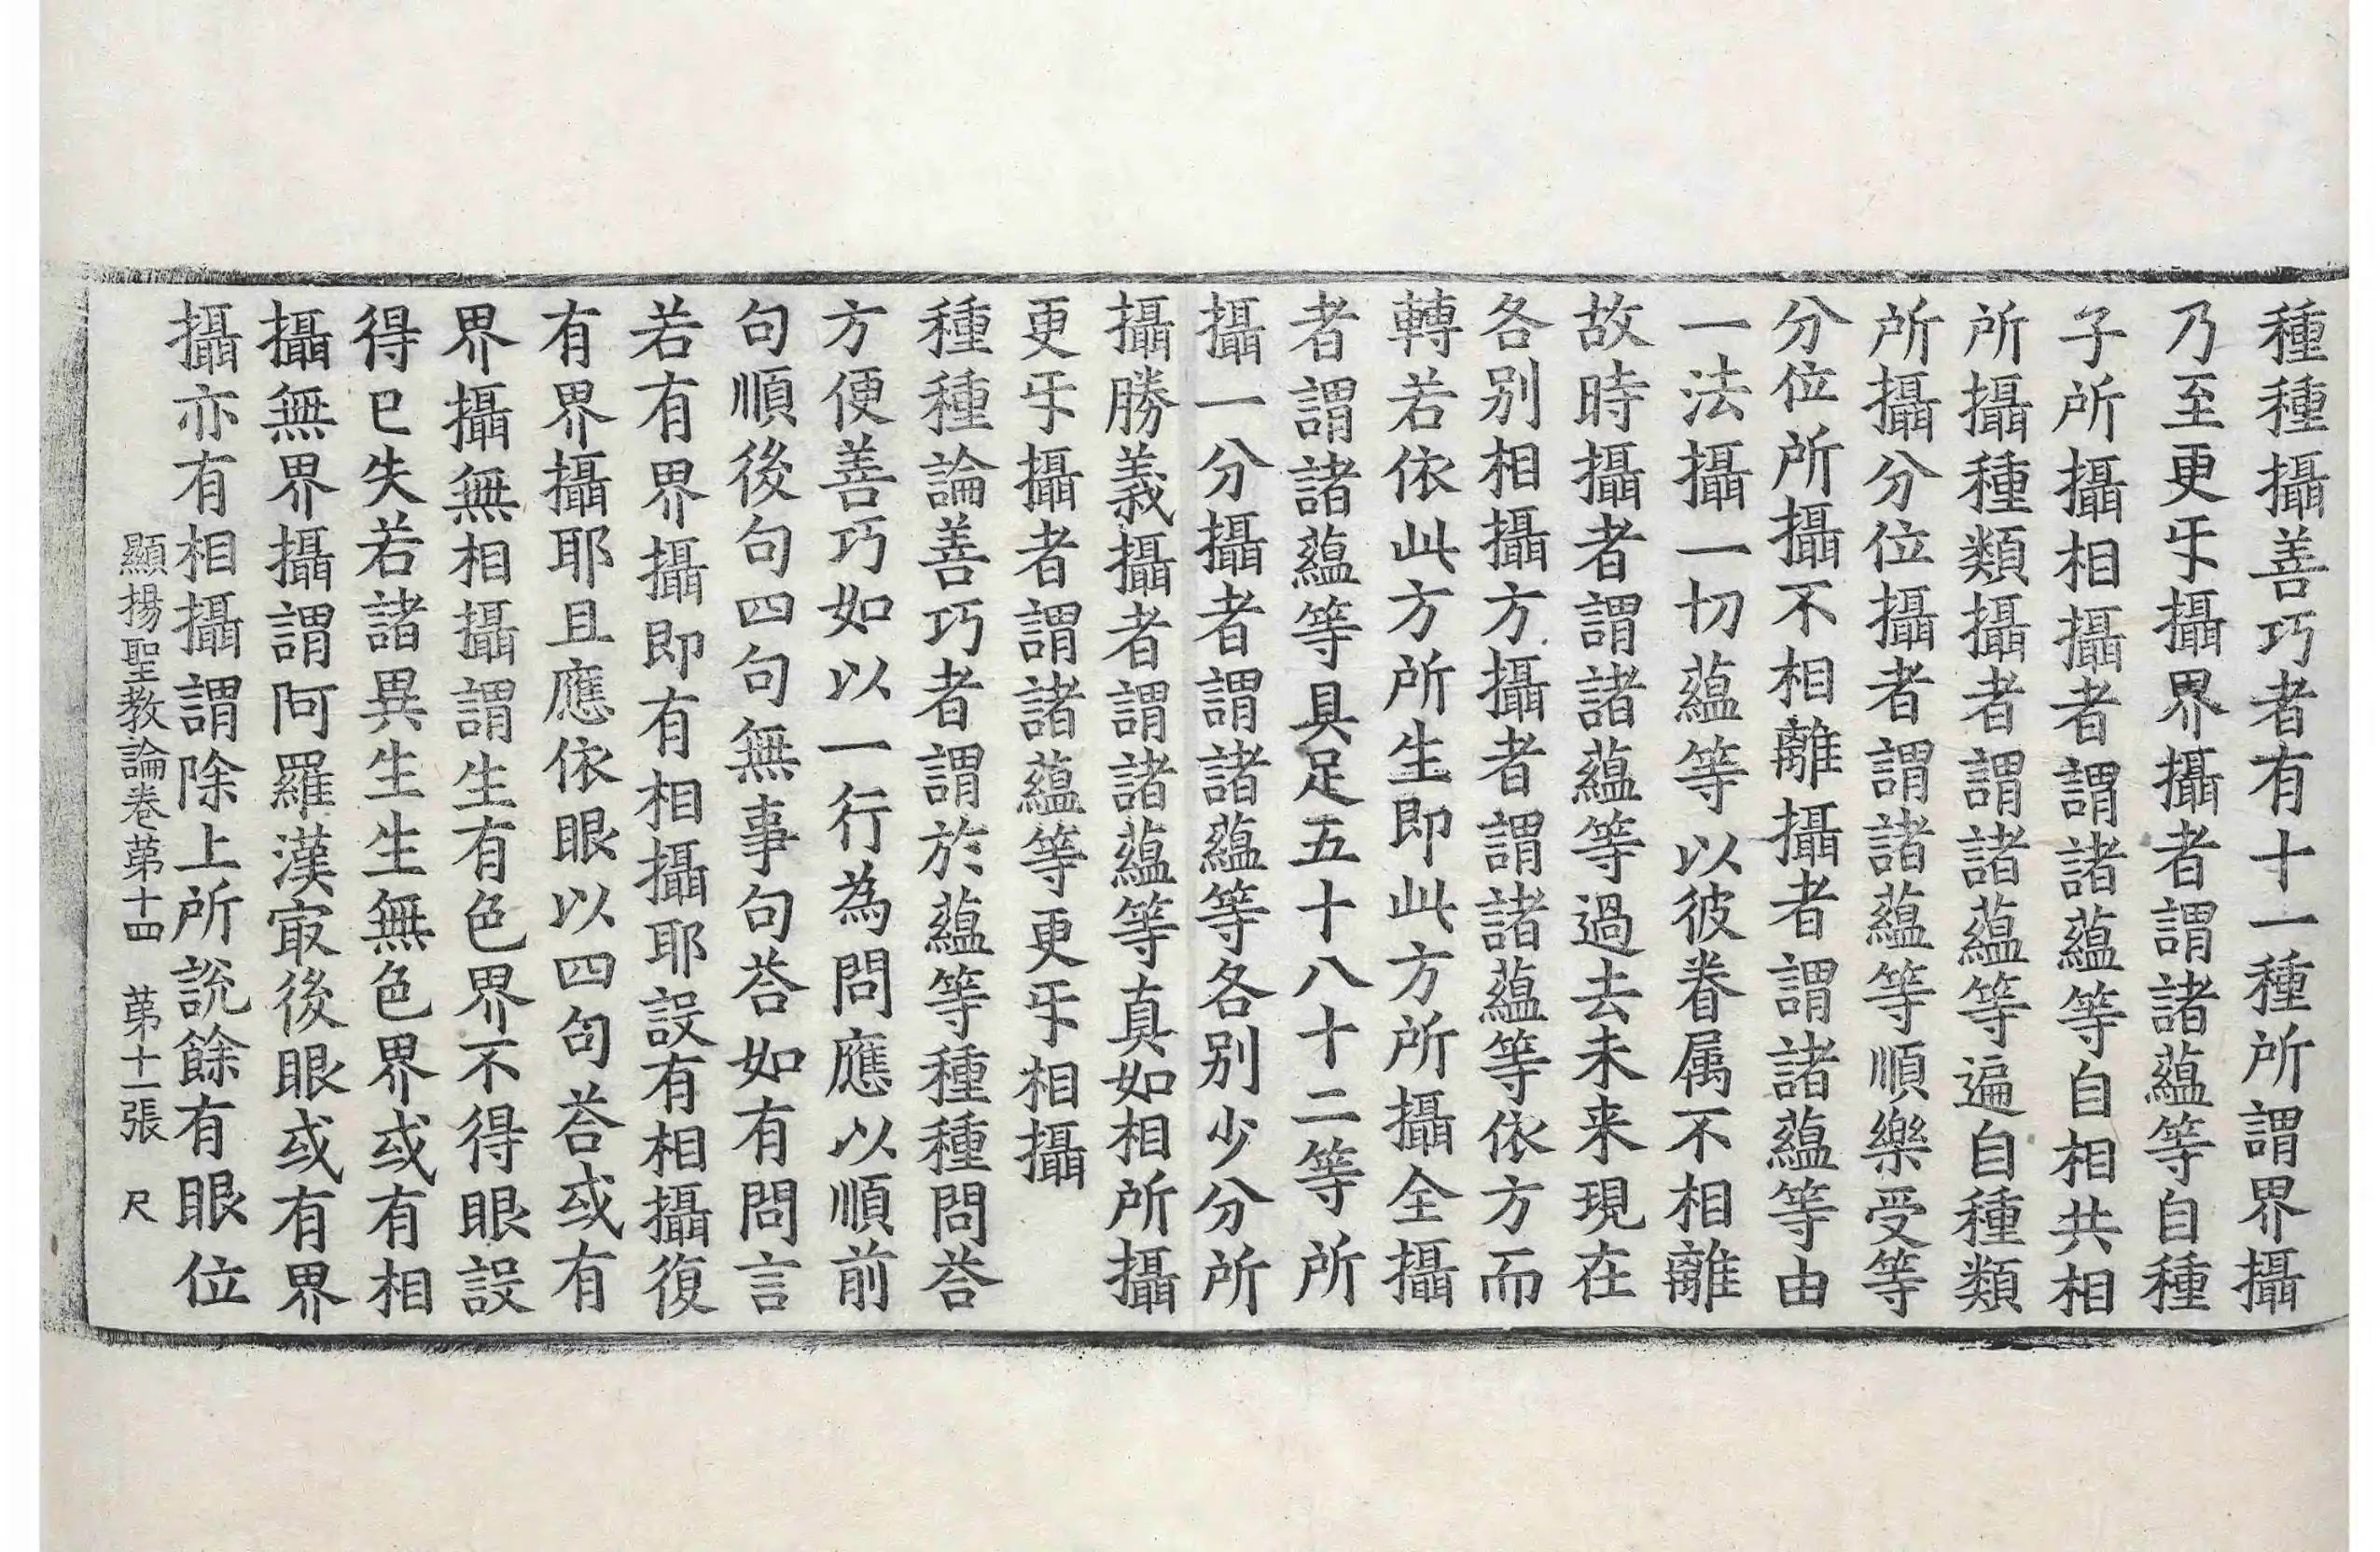 種種攝善巧者有十一種所謂界攝
乃至更㸦攝界攝者謂諸蘊等自種
子所攝相攝者謂諸蘊等自相共相
所攝種類攝者謂諸蘊等遍自種類
所攝分位攝者謂諸蘊等順樂受等
分位所攝不相離攝者謂諸蘊等由
一法攝一切蘊等以彼眷属不相離
故時攝者謂諸蘊等過去未来現在
各別相攝方攝者謂諸蘊等依方而
轉若依此方所生即此方所攝全攝
者謂諸蘊等具足五十八十二等所
攝一分攝者謂諸蘊等各別少分所
攝勝義攝者謂諸蘊等真如相所攝
更㸦攝者謂諸蘊等更㸦相攝
種種論善巧者謂於蘊等種種問荅
方便善巧如以一行為問應以順前
句順後句四句無事句荅如有問言
若有界攝即有相攝耶設有相攝復
有界攝耶且應依眼以四句荅或有
界攝無相攝謂生有色界不得眼設
得已失若諸異生生無色界或有相
攝無界攝謂阿羅漢㝡後眼或有界
攝亦有相攝謂除上所說餘有眼位
顯揚聖教論卷苐十四　苐十一張　尺